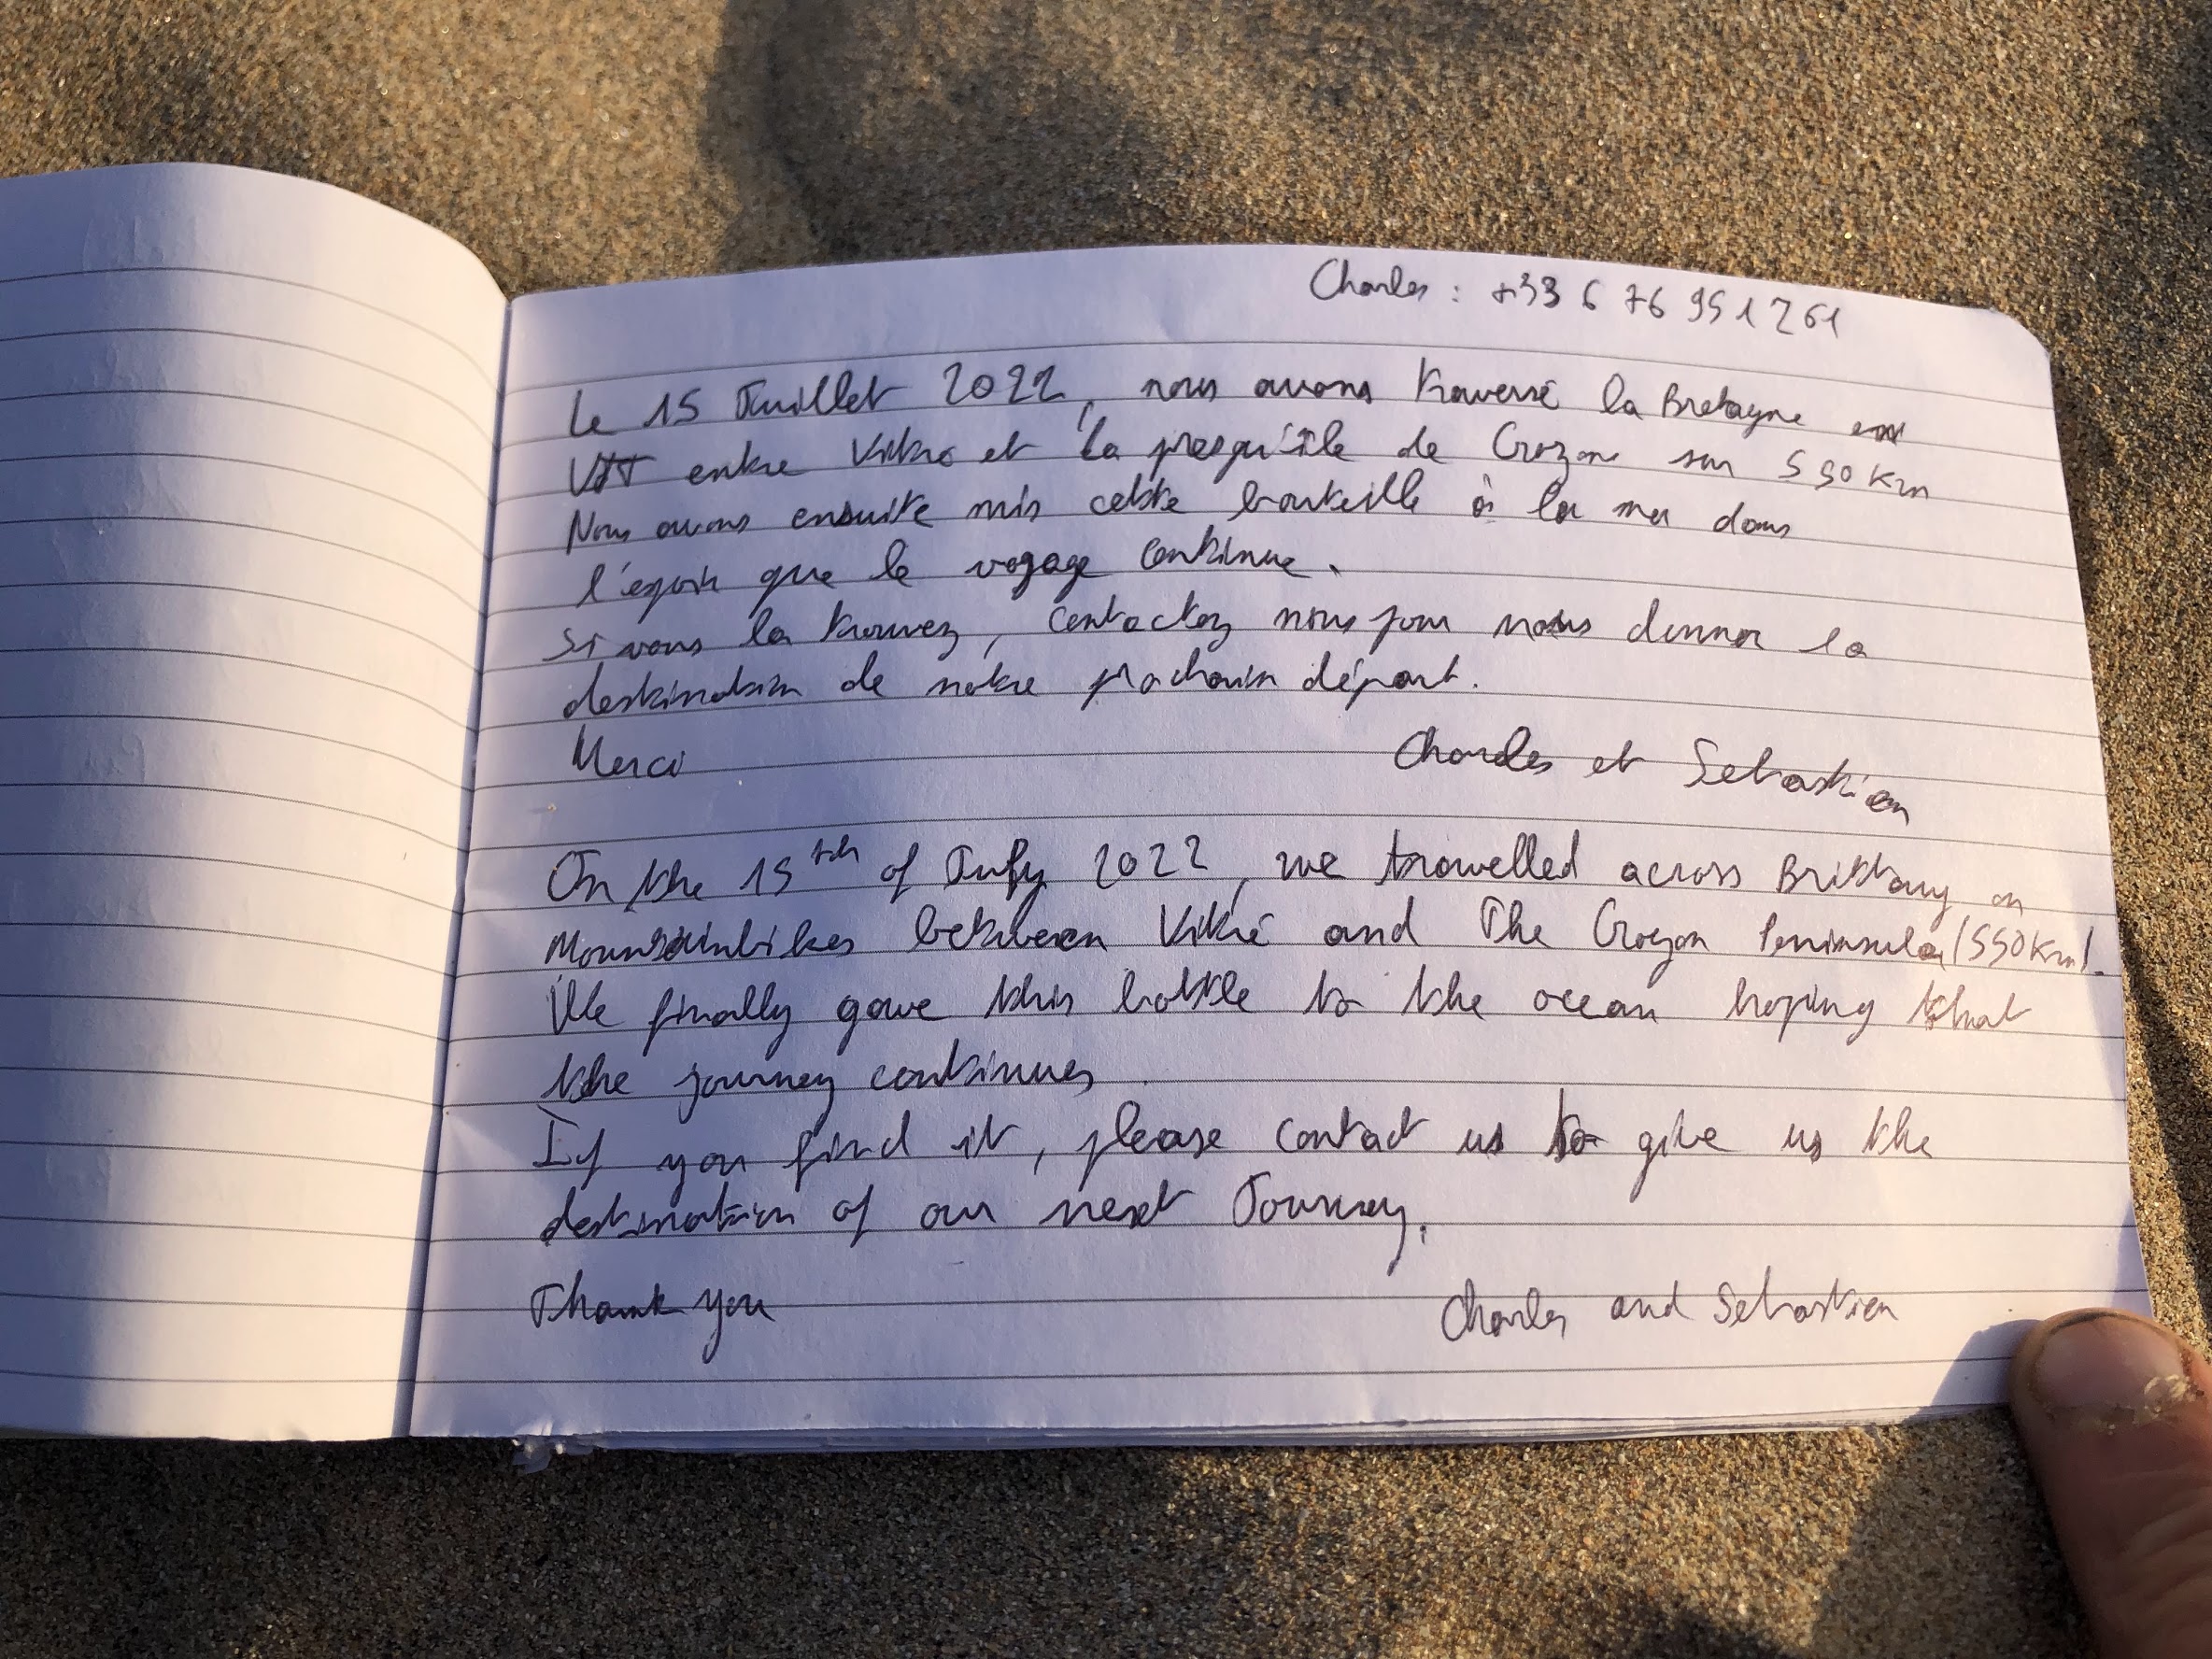 Charles : +33 6 76 951261
Le 15 Juillet 2022, nous avons traversé la Bretagne en
VTT entre Vitré et la presqu'île de Crozon sur 550 km
Nous avons ensuite mis cette bouteille à la mer dans
l'espoir que le voyage continue.
Si vous la trouvez, contactez nous pour nous donner la
destination de notre prochain départ.
Merci Charles et Sebastien
On the 15th of July 2022, we travelled across Brittany on
Mountainbikes between Vitré and The Crozon Peninsula (550km).
We finally gave this bottle to the ocean hoping that
the journey continues.
If you find it, please contact us to give us the
destination of our next Journey.
Thank you Charles and Sebastien